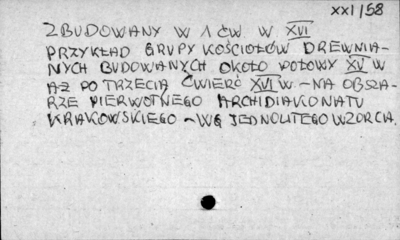 XXI/58
ZBUDOWANY W 1 ĆW W XVI
PRZYKŁAD GRUPY KOŚCIOŁÓW DREWNIA-
NYCH BUDOWANYCH OKOŁO POŁOWY XV W
AŻ PO TRZECIĄ ĆWIERĆ XVI W - NA OBSZA-
RZE PIERWOTNEGO ARCHIDIAKONATU
KRAKOWSKIEGO - WG JEDNOLITEGO WZORCA.